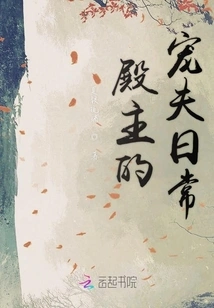 殿主的
宠夫日常
云起书院